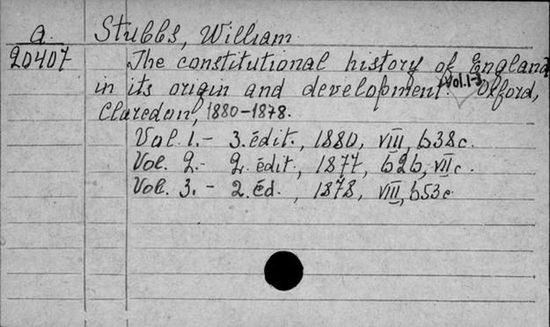 a. Stubbs, William.
20407 The constitutional history of England
in its origin and development Vol.1-3 Oxford,
Claredon, 1880-1878.
Vol. 1.- 3. édit., 1880, VIII, 638c.
Vol. 2.- 2. édit., 1877, 626, VII c.
Vol. 3.- 2. éd., 1878, VIII, 653c